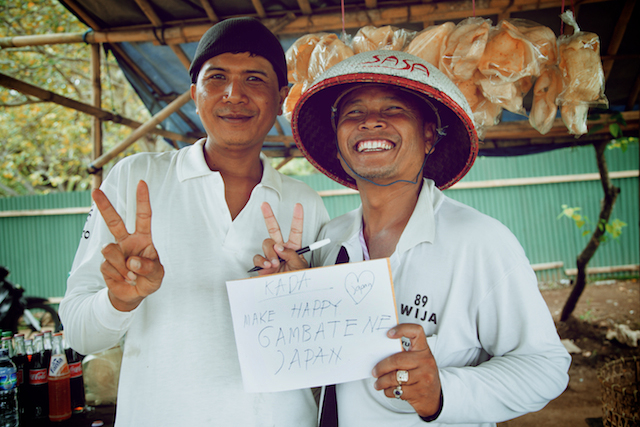 SASA
KADA
Japan
MAKE HAPPY
GAMBATE NE
JAPAN
89
WIJA